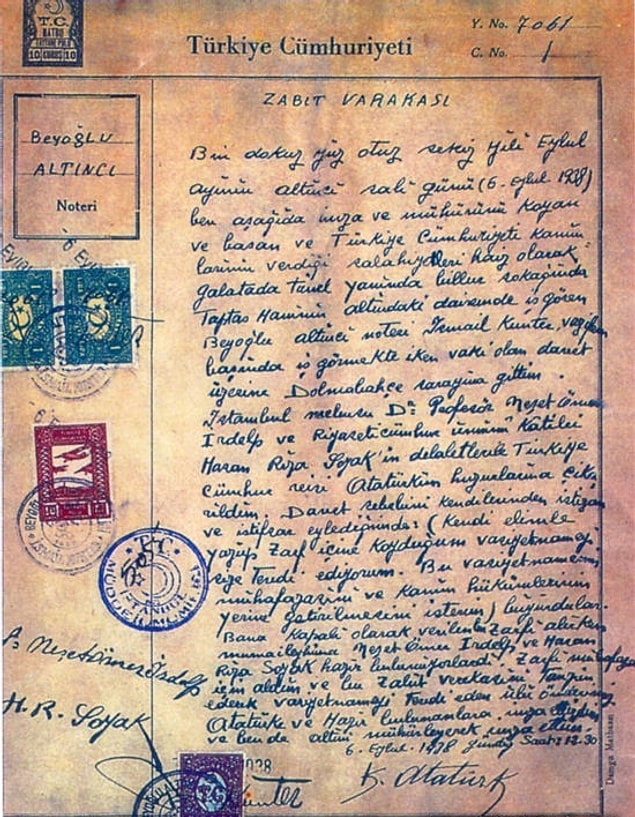 T.C.
MATBU
10 KURUŞ 10
Y. No. 7061
C. No. 1
Türkiye Cümhuriyeti
Beyoğlu
ALTINCI
Noteri
ZABIT VARAKASI
Bin dokuz yüz otuz sekiz yılı Eylul
ayının altıncı salı günü (6. eylul 1938)
ben aşağıda imza ve mühürünü koyan
ve basan ve Türkiye Cümhuriyeti kanun
larının verdiği salahiyetleri haiz olarak
galatada tünel yanında billur sokağında
Taptas Hanının altındaki dairemde iş gören
Beyoğlu altıncı noteri İsmail Kunter, vazifem
başında iş görmekte iken vaki olan davet
üzerine Dolmabahçe sarayına gittim.
İstanbul mebusu Dr. Profesör Neşet Ömer
İrdelp ve Riyaseticümhur umumi Katibi
Hasan Rıza Soyak'in delaletlerile Türkiye
Cümhur reisi Atatürkün huzurlarına çıka
rıldım. Davet sebebini kendilerinden istizan
ve istifsar eylediğimde: (Kendi elimle
yazıp Zarf içine koyduğum vasiyetnameyi
size tevdi ediyorum. Bu vasiyetnamemin
muhafazasını ve kanun hükümlerinin
yerine getirilmesini isterim) buyurdular.
Bana kapalı olarak verilen Zarfı alırken
mumaileyhima Neşet Ömer İrdelp ve Hasan
Rıza Soyak hazır bulunuyorlardı. Zarfı muhafaza
için aldım ve bu Zabıt varakasını tanzim
ederek vasiyetnameyi tevdi eden ulu önderimiz
Atatürke ve Hazır bulunanlara imza ettirdim
ve ben de altını mühürleyerek imza ettim.
6. Eylul. 1938 Saat: 12.30
N. Neşet Ömer İrdelp
H. R. Soyak
K. Atatürk
Kunter
T.C.
İSTANBUL
Damga Matbaası